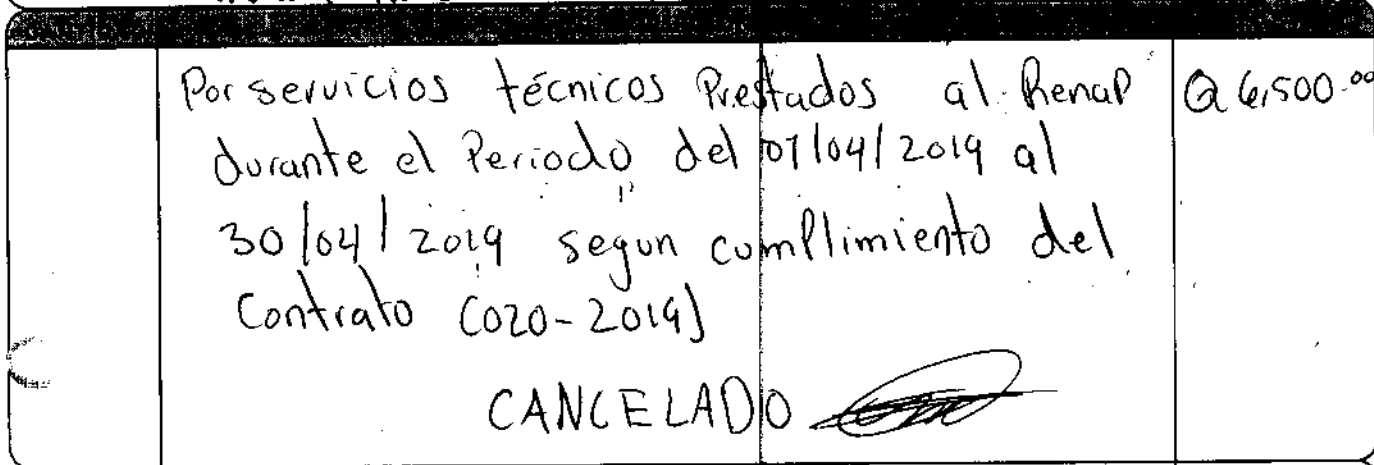 Por servicios técnicos Prestados al Renap Q 6,500.00
durante el Periodo del 01/04/2019 al
30/04/2019 segun cumplimiento del
Contrato (020-2019)
CANCELADO